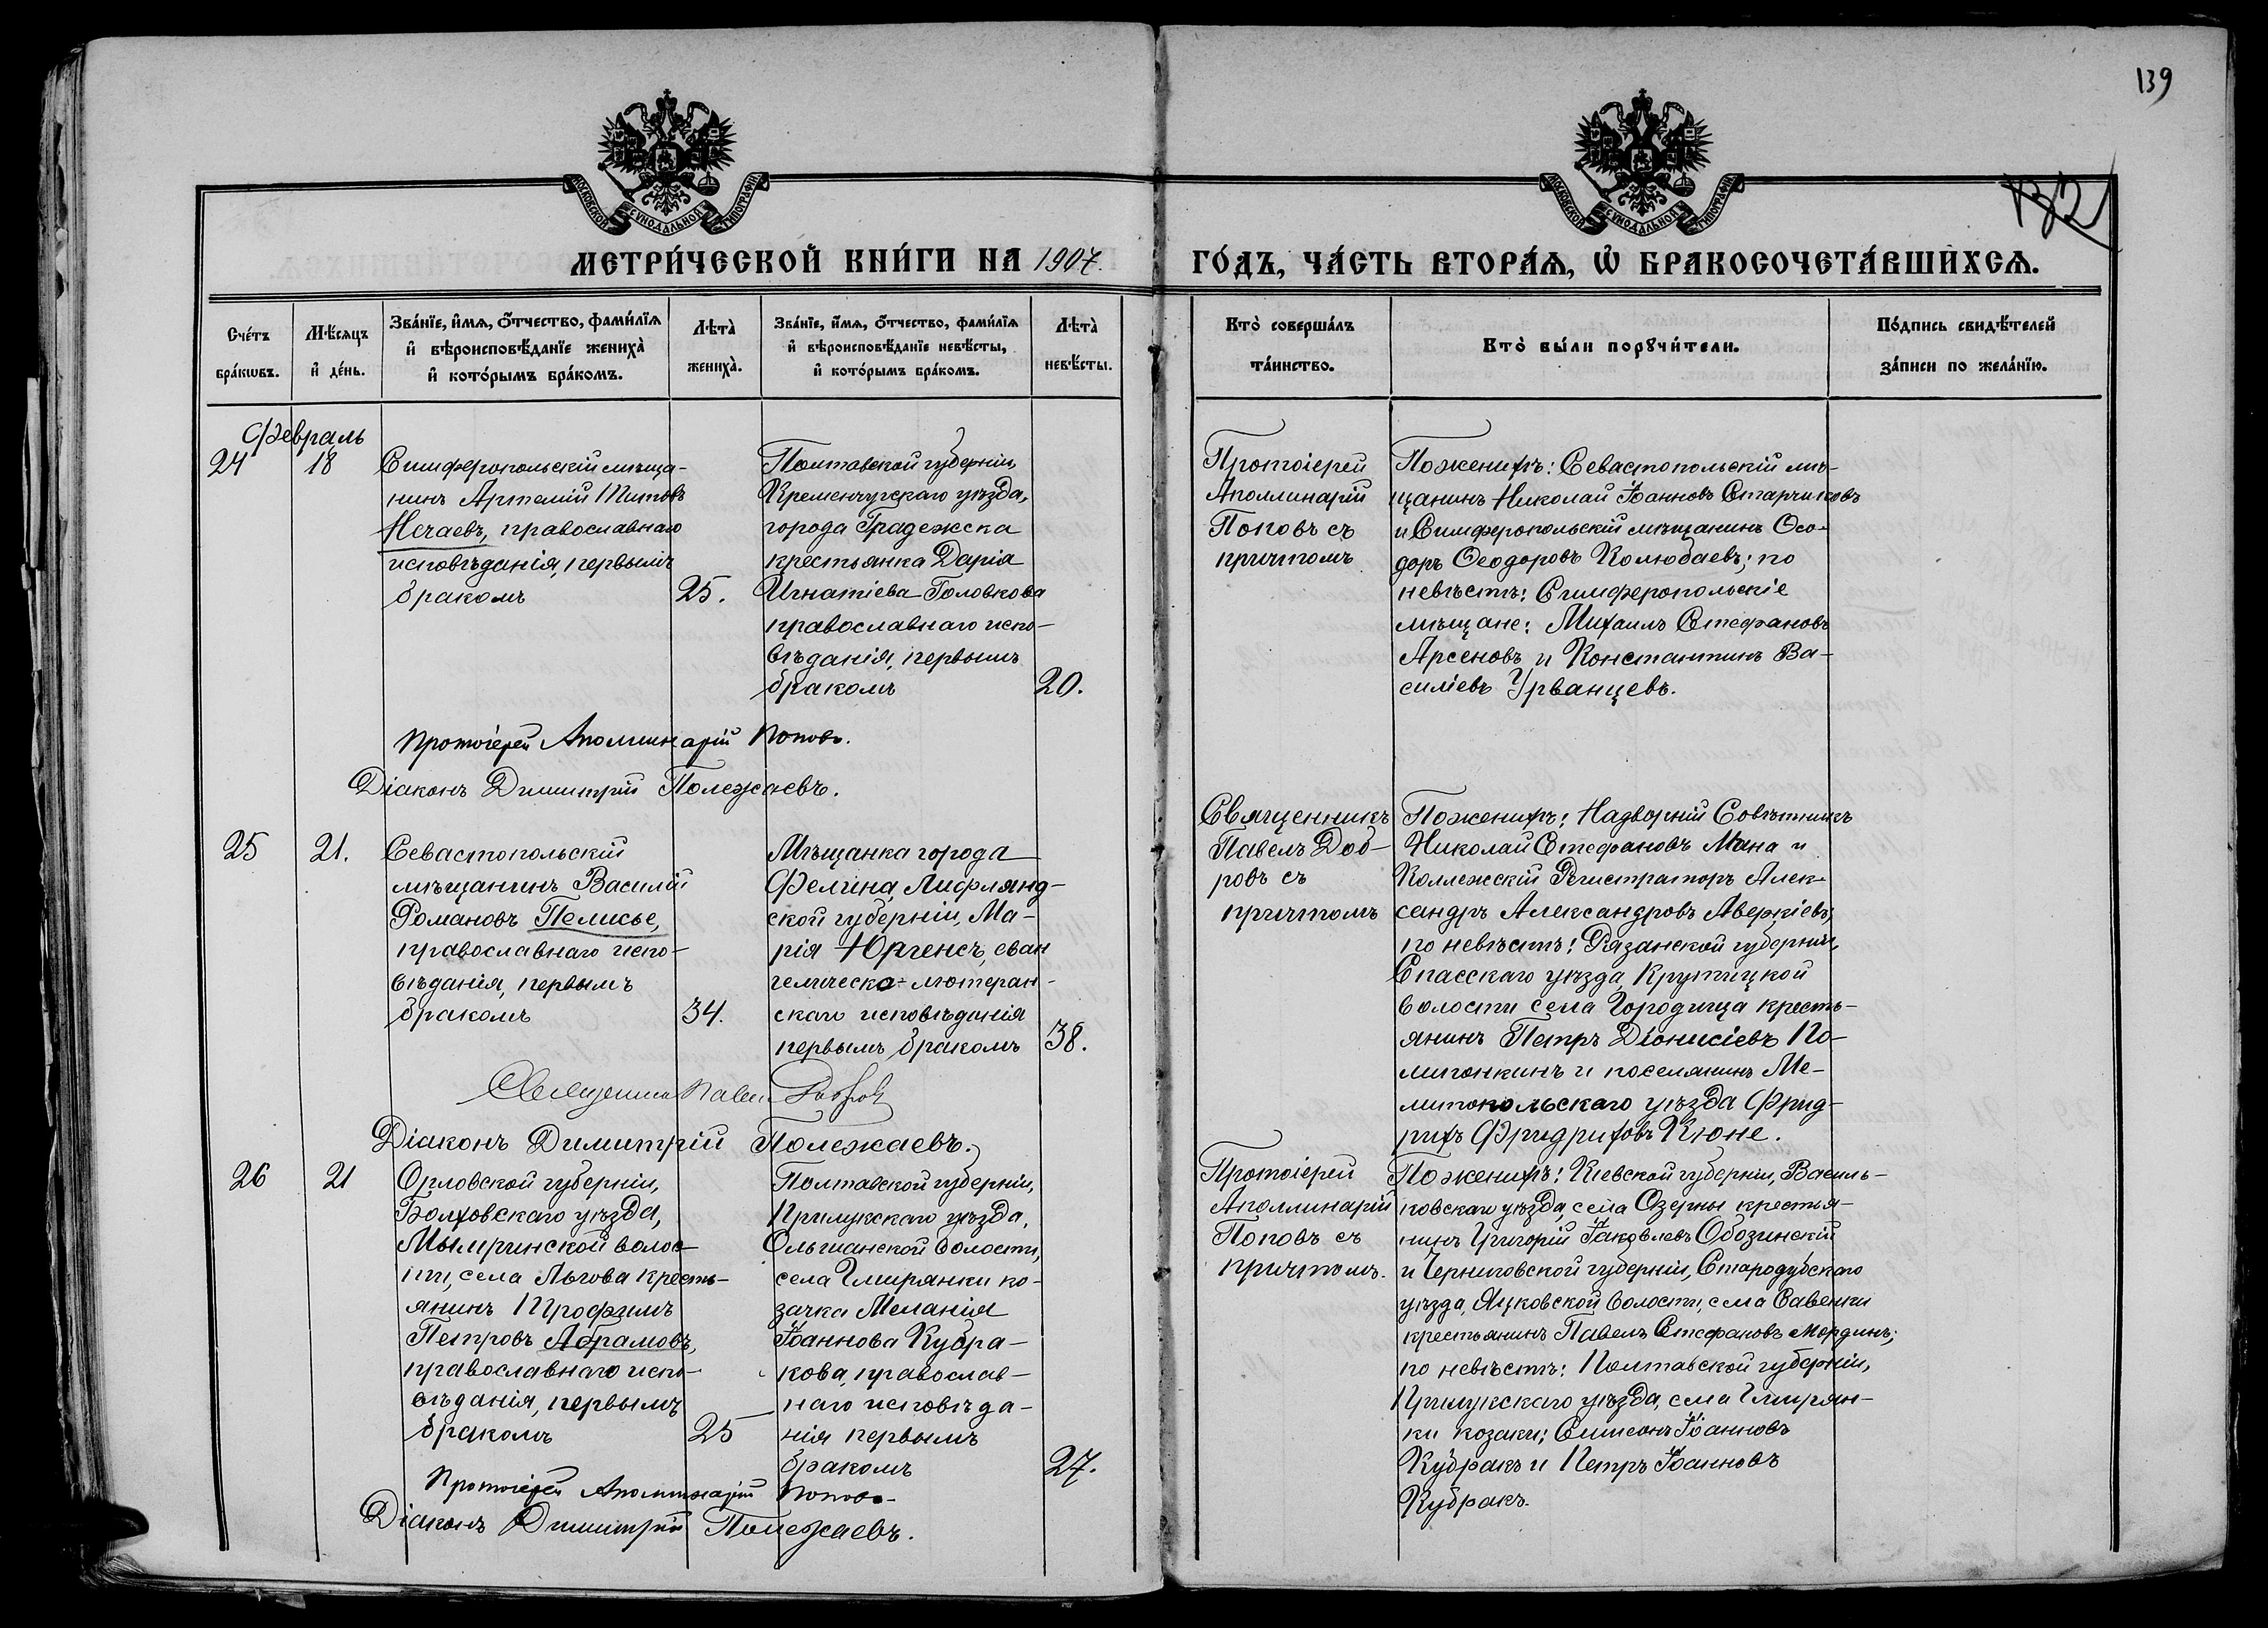 139
132
МОСКОВСКОЙ СѴНОДАЛЬНОЙ ТИПОГРАФІИ
МОСКОВСКОЙ СѴНОДАЛЬНОЙ ТИПОГРАФІИ
МЕТРИ́ЧЕСКОЙ КНИ́ГИ НА 1907.
ГО́ДЪ, ЧА́СТЬ ВТОРА́Я, Ѡ҆ БРАКОСОЧЕТА́ВШИХСЯ.
Сче́тъ
бра́кѡвъ.
Мѣ́сяцъ
и҆ де́нь.
Зва́нїе, и҆́мя, ѻ҆́тчество, фами́лїя
и҆ вѣроисповѣ́данїе жениха̀
и҆ кото́рымъ бра́комъ.
Лѣта̀
жениха̀.
Зва́нїе, и҆́мя, ѻ҆́тчество, фами́лїя
и҆ вѣроисповѣ́данїе невѣ́сты,
и҆ кото́рымъ бра́комъ.
Лѣта̀
невѣ́сты.
Кто̀ соверша́лъ
та́инство.
Кто̀ бы́ли порꙋчи́тели.
По́дпись свидѣ́телей
за́писи по жела́нїю.
Февраль
24
18
Симферопольскій мѣща-
нинъ Артемій Титовъ
Нечаевъ, православнаго
исповѣданія, первымъ
бракомъ
25.
Полтавской губерніи,
Кременчугскаго уѣзда,
города Градежска
крестьянка Дарія
Игнатіева Головкова
православнаго испо-
вѣданія, первымъ
бракомъ
20.
Протоіерей
Аполлинарій
Поповъ съ
причтомъ
По женихѣ: Севастопольскій мѣ-
щанинъ Николай Іоанновъ Старчиковъ
и Симферопольскій мѣщанинъ Ѳео-
доръ Ѳеодоровъ Колюбаевъ; по
невѣстѣ: Симферопольскіе
мѣщане: Михаилъ Стефановъ
Арсеновъ и Константинъ Ва-
силіевъ Урванцевъ.
Протоіерей Аполлинарій Поповъ.
Діаконъ Димитрій Полежаевъ.
25
21.
Севастопольскій
мѣщанинъ Василій
Романовъ Пелисье,
православнаго испо-
вѣданія, первымъ
бракомъ
34.
Мѣщанка города
Фелина, Лифлянд-
ской губерніи, Ма-
рія Юргенсъ, еван
гелическо-лютеран-
скаго исповѣданія
первымъ бракомъ
38.
Священникъ
Павелъ Доб-
ровъ съ
причтомъ
По женихѣ: Надворный Совѣтникъ
Николай Стефановъ Мана и
Коллежскій Регистраторъ Алек-
сандръ Александровъ Аверкіевъ;
по невѣстѣ: Рязанской губерніи,
Спасскаго уѣзда, Крутицкой
волости села Городища кресть-
янинъ Петръ Діонисіевъ По-
мигонкинъ и поселянинъ Ме-
литопольскаго уѣзда Фрид-
рихъ Фридриховъ Кюне.
Священникъ Павелъ Добровъ
Діаконъ Димитрій Полежаевъ.
26
21
Орловской губерніи,
Болховскаго уѣзда,
Мымринской волос-
ти, села Льгова кресть-
янинъ Трофимъ
Петровъ Абрамовъ,
православнаго испо-
вѣданія, первымъ
бракомъ
25
Полтавской губерніи,
Прилукскаго уѣзда,
Ольшанской волости,
села Гмирянки ко-
зачка Меланія
Іоаннова Кубра-
кова, православ-
наго исповѣда-
нія первымъ
бракомъ
27.
Протоіерей
Аполлинарій
Поповъ съ
причтомъ.
По женихѣ: Кіевской губерніи, Василь-
ковскаго уѣзда, села Озерны крестья-
нинъ Григорій Іаковлевъ Обозинскій
и Черниговской губерніи, Стародубскаго
уѣзда, Яцковской волости, села Савенки
крестьянинъ Павелъ Стефановъ Мординъ;
по невѣстѣ: Полтавской губерніи,
Прилукскаго уѣзда, села Гмирян-
ки козаки: Симеонъ Іоанновъ
Кубракъ и Петръ Іоанновъ
Кубракъ.
Протоіерей Аполлинарій Поповъ.
Діаконъ Димитрій Полежаевъ.